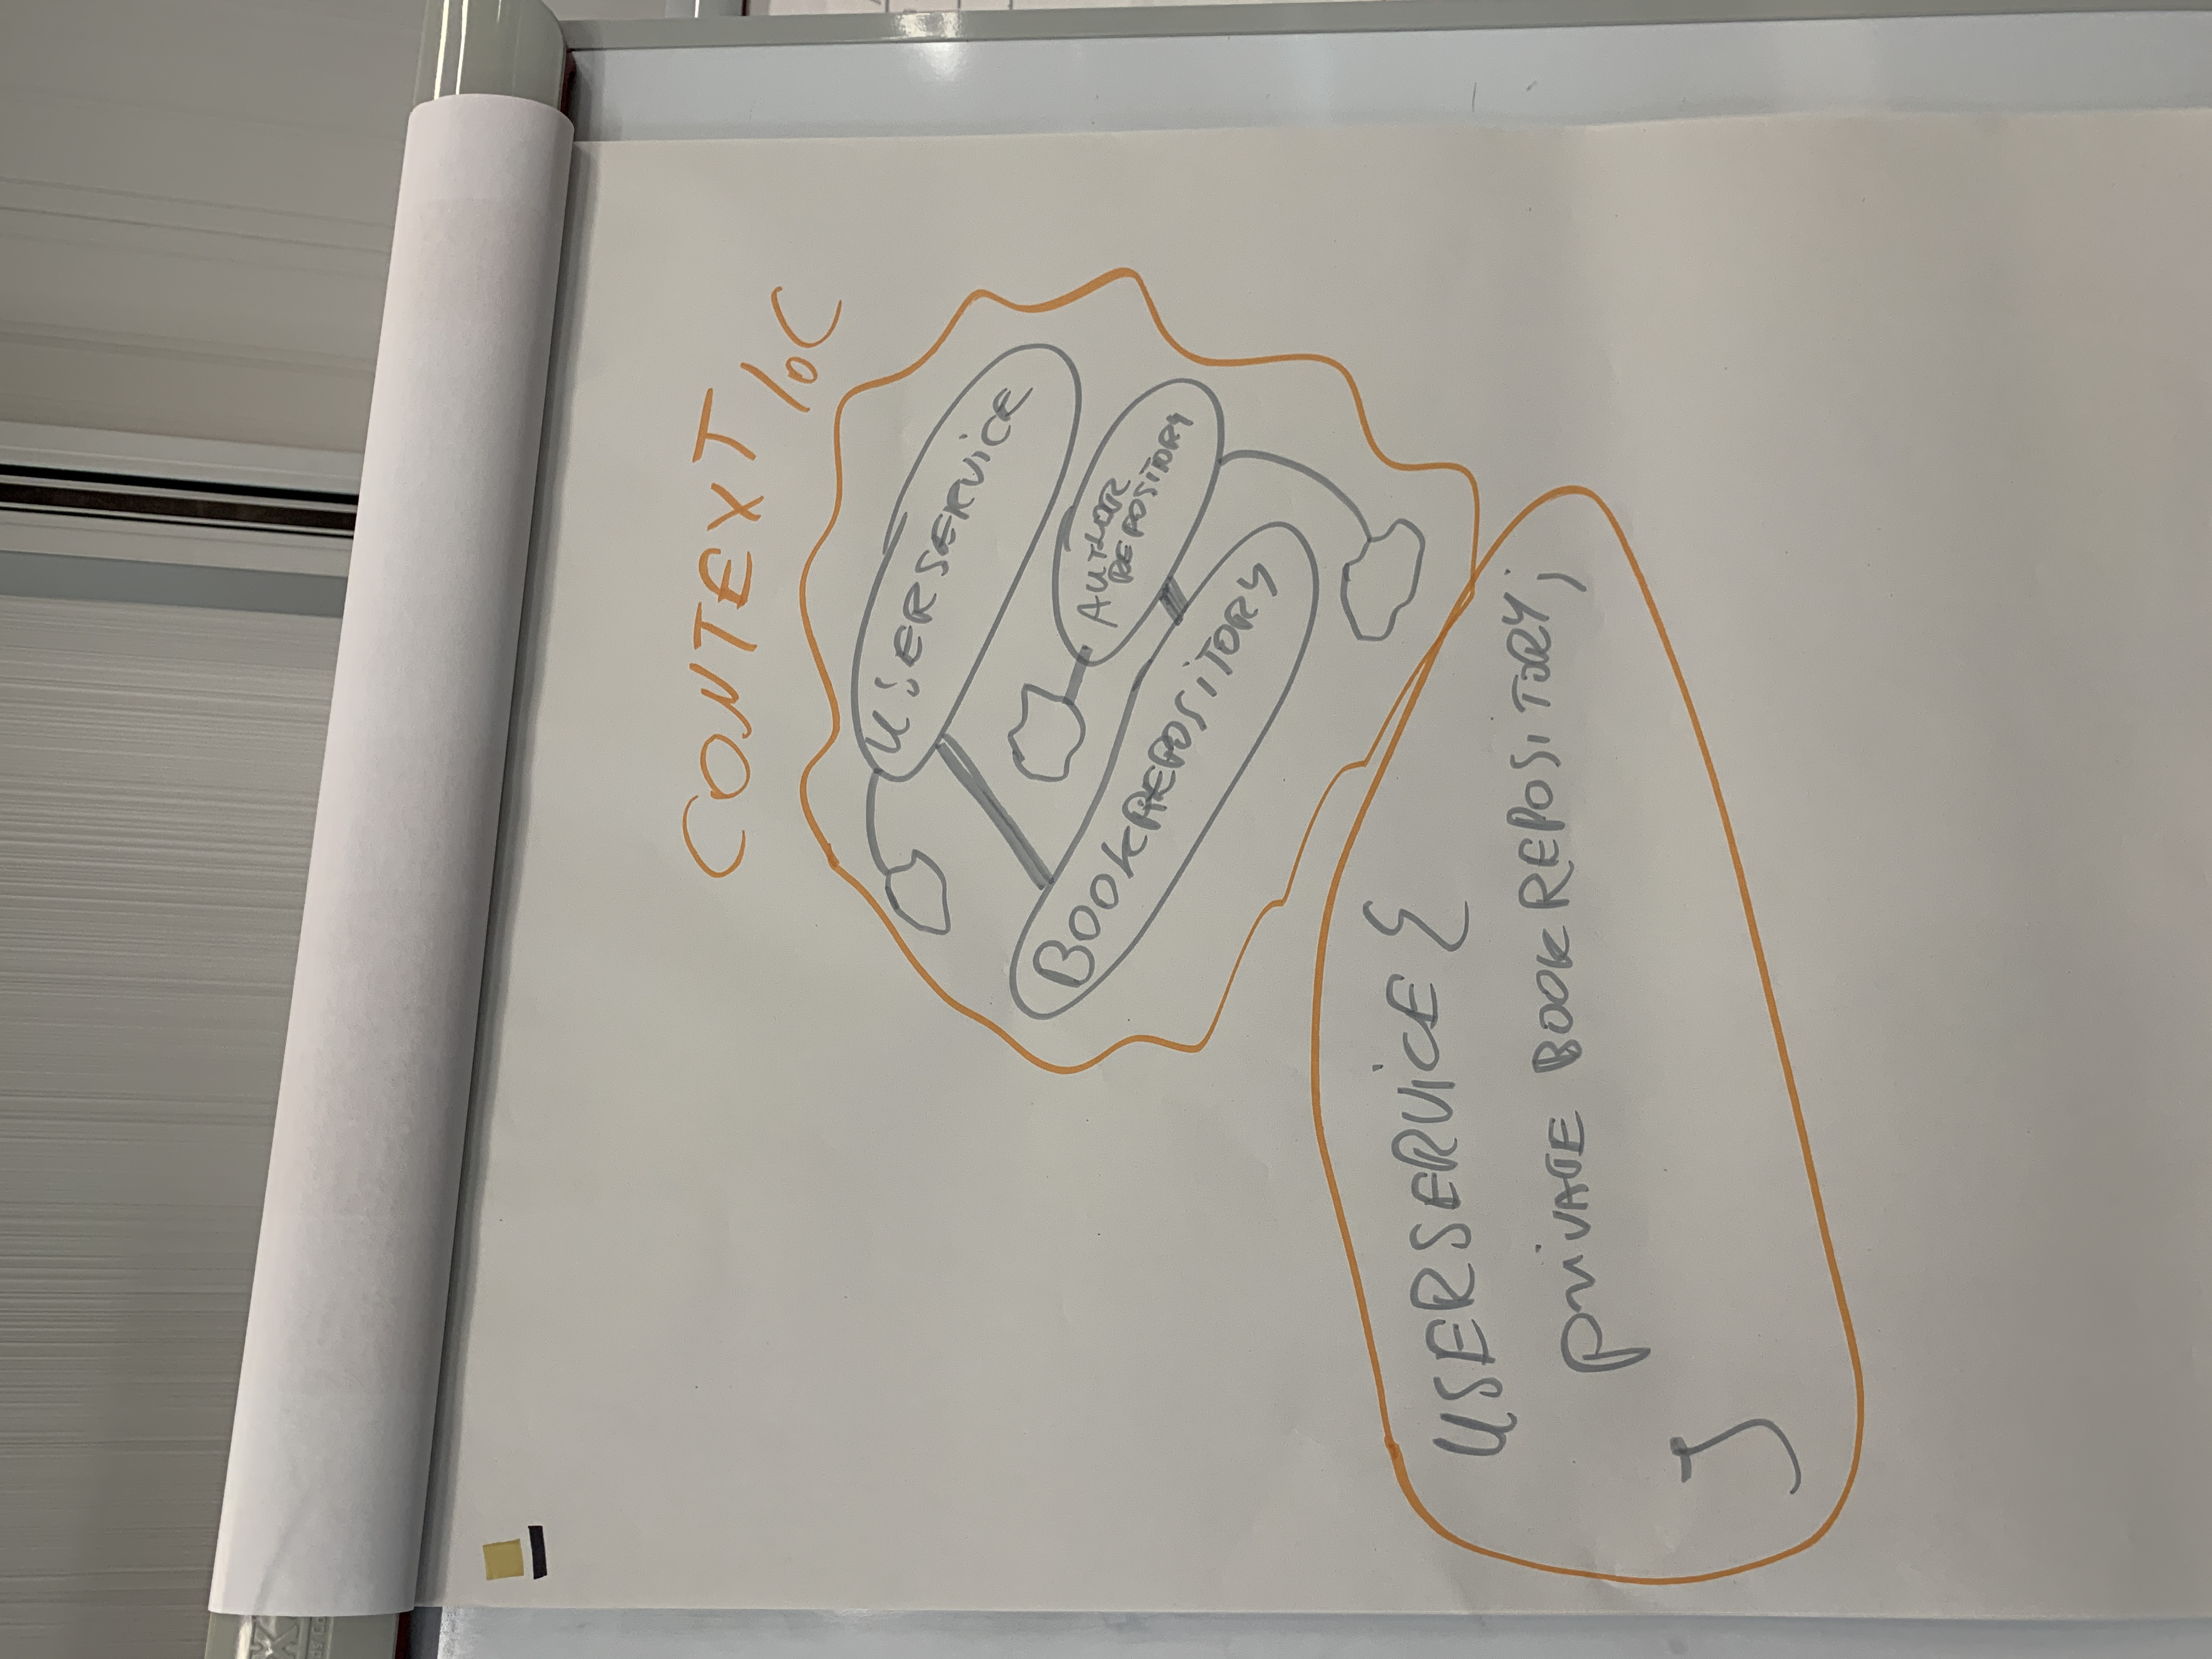 CONTEXT IoC
USERSERVICE
BOOKREPOSITORY
AUTHOR
REPOSITORY
USERSERVICE {
privATE BOOKREPOSITORY;
}